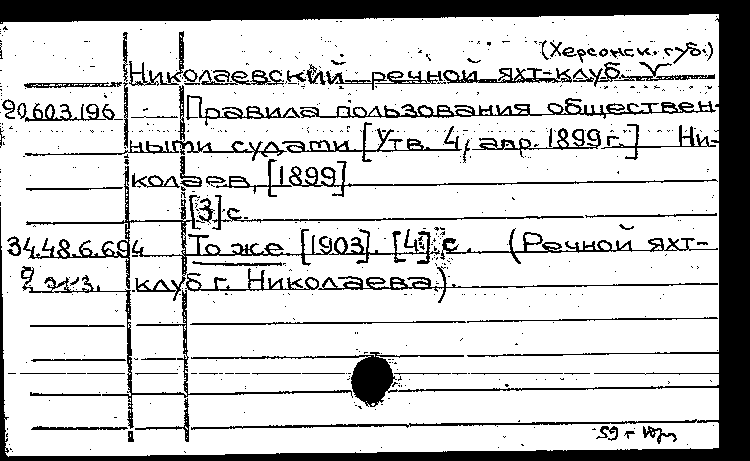 (Херсонск. губ.)
Николаевский речной яхт-клуб. V
20.603.196 Правила пользования обществен-
ными судами [Утв. 4, апр. 1899 г.] Ни-
колаев, [1899].
[3] с.
34.48.6.694 То же [1903]. [4] с. (Речной яхт-
2 экз. клуб г. Николаева).